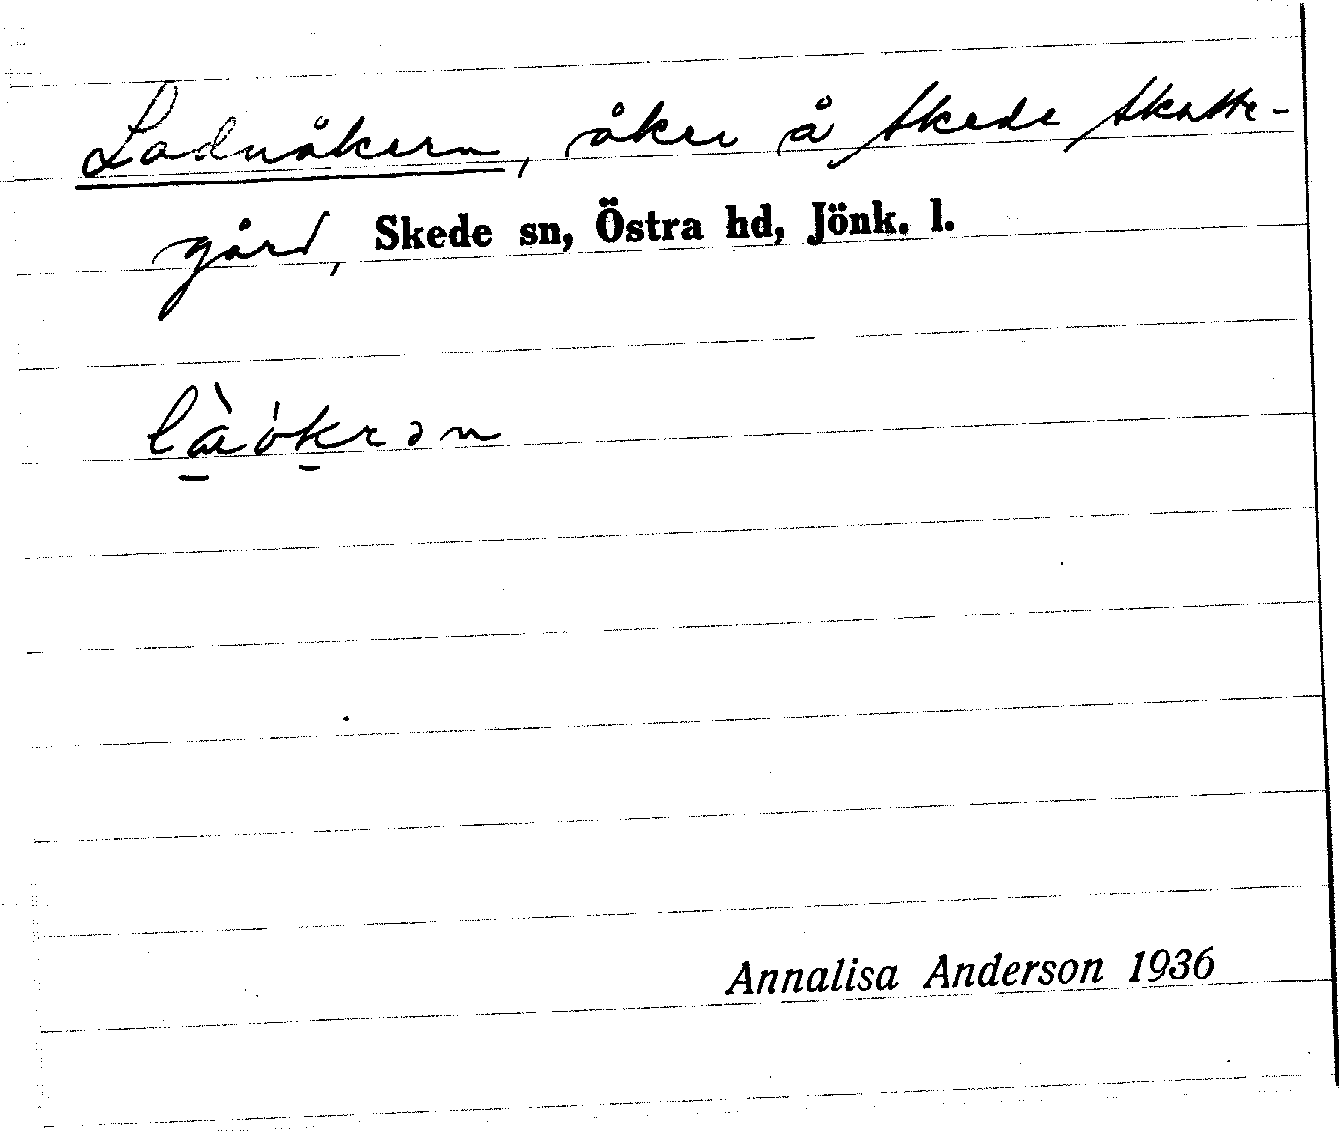 Ladnåkern, åker å Skede Skatte-
gård, Skede sn, Östra hd, Jönk. l.
Annalisa Anderson 1936